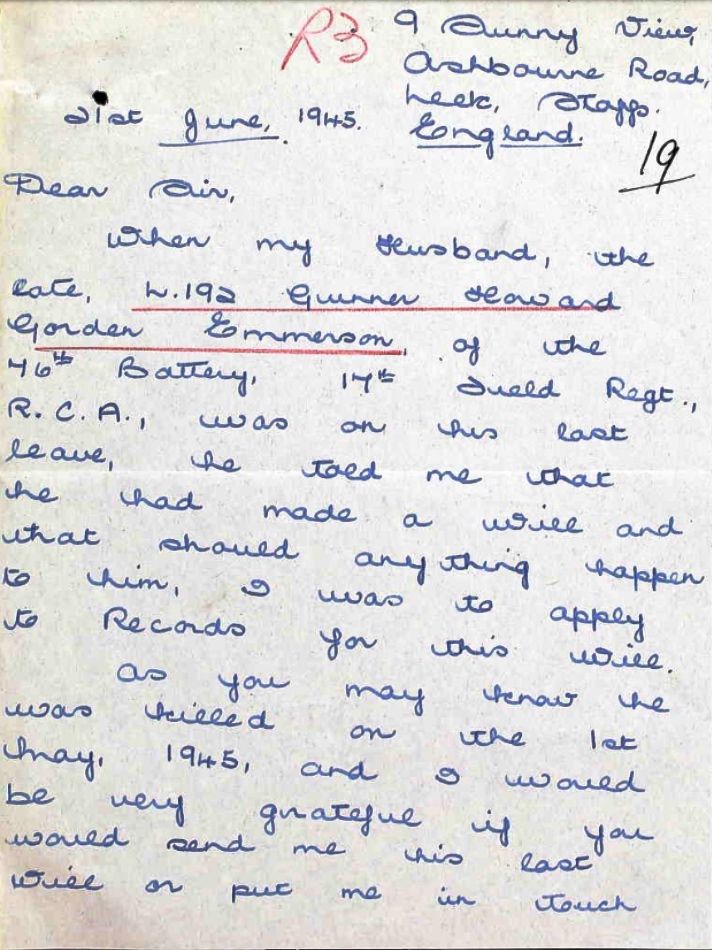 R3
9 Sunny View,
Ashbourne Road,
Leek, Staffs.
21st June, 1945. England.
19
Dear Sir,
When my Husband, the
late, L.192 Gunner Howard
Gorden Emmerson, of the
76th Battery, 17th Field Regt.,
R.C.A., was on his last
leave, he told me that
he had made a will and
that should anything happen
to him, I was to apply
to Records for this will.
As you may know he
was killed on the 1st
May, 1945, and I would
be very grateful if you
would send me his last
will or put me in touch